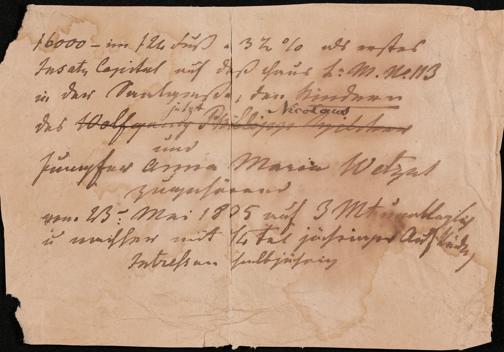 16000 – im 12 fuß a 3½ % als erstes
Insatz Capital auf das Haus L: M. No 113
in der Saalgasse, den Kindern
des Wolfgang Philipp
jetzt Nicolaus
und
Jungfer Anna Maria Wetzel
zugehörend
vom 23. Mai 1835 auf 3
u weiter mit ¼ tel jähriger Aufkündig
Intressen halbjährig